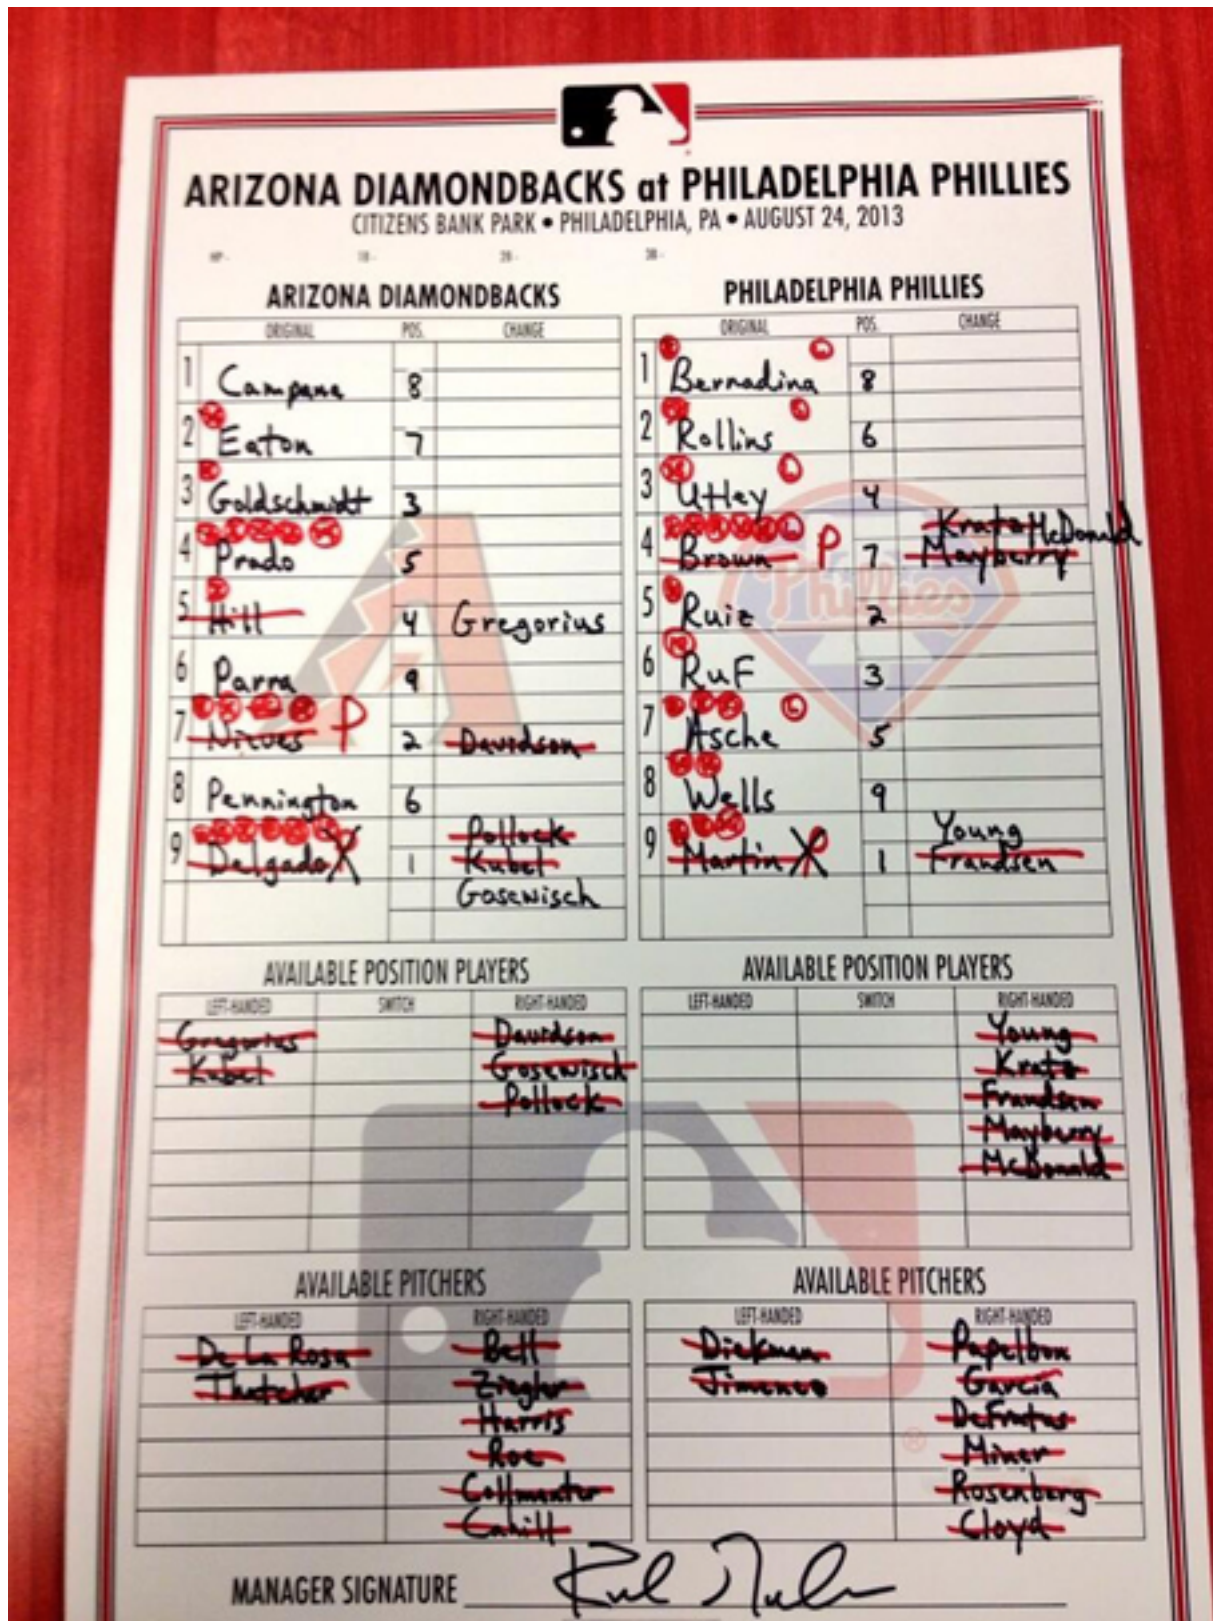 ARIZONA DIAMONDBACKS at PHILADELPHIA PHILLIES
CITIZENS BANK PARK • PHILADELPHIA, PA • AUGUST 24, 2013
HP- 1B- 2B- 3B-
ARIZONA DIAMONDBACKS
ORIGINAL POS. CHANGE
1 Campana 8
2 Eaton 7
3 Goldschmidt 3
4 Prado 5
5 Hill 4 Gregorius
6 Parra 9
7 Nieves P 2 Davidson
8 Pennington 6
Pollock
9 Delgado X 1 Kubel
Gosewisch
PHILADELPHIA PHILLIES
ORIGINAL POS. CHANGE
1 Bernadina 8
2 Rollins 6
3 Utley 4
Kratz McDonald
4 Brown P 7 Mayberry
5 Ruiz 2
6 Ruf 3
7 Asche 5
8 Wells 9
Young
9 Martin X P 1 Frandsen
AVAILABLE POSITION PLAYERS
LEFT-HANDED SWITCH RIGHT-HANDED
Gregorius Davidson
Kubel Gosewisch
Pollock
AVAILABLE POSITION PLAYERS
LEFT-HANDED SWITCH RIGHT-HANDED
Young
Kratz
Frandsen
Mayberry
McDonald
Phillies
AVAILABLE PITCHERS
LEFT-HANDED RIGHT-HANDED
De La Rosa Bell
Thatcher Ziegler
Harris
Roe
Collmenter
Cahill
AVAILABLE PITCHERS
LEFT-HANDED RIGHT-HANDED
Diekman Papelbon
Jimenez Garcia
DeFratus
Miner
Rosenberg
Cloyd
MANAGER SIGNATURE